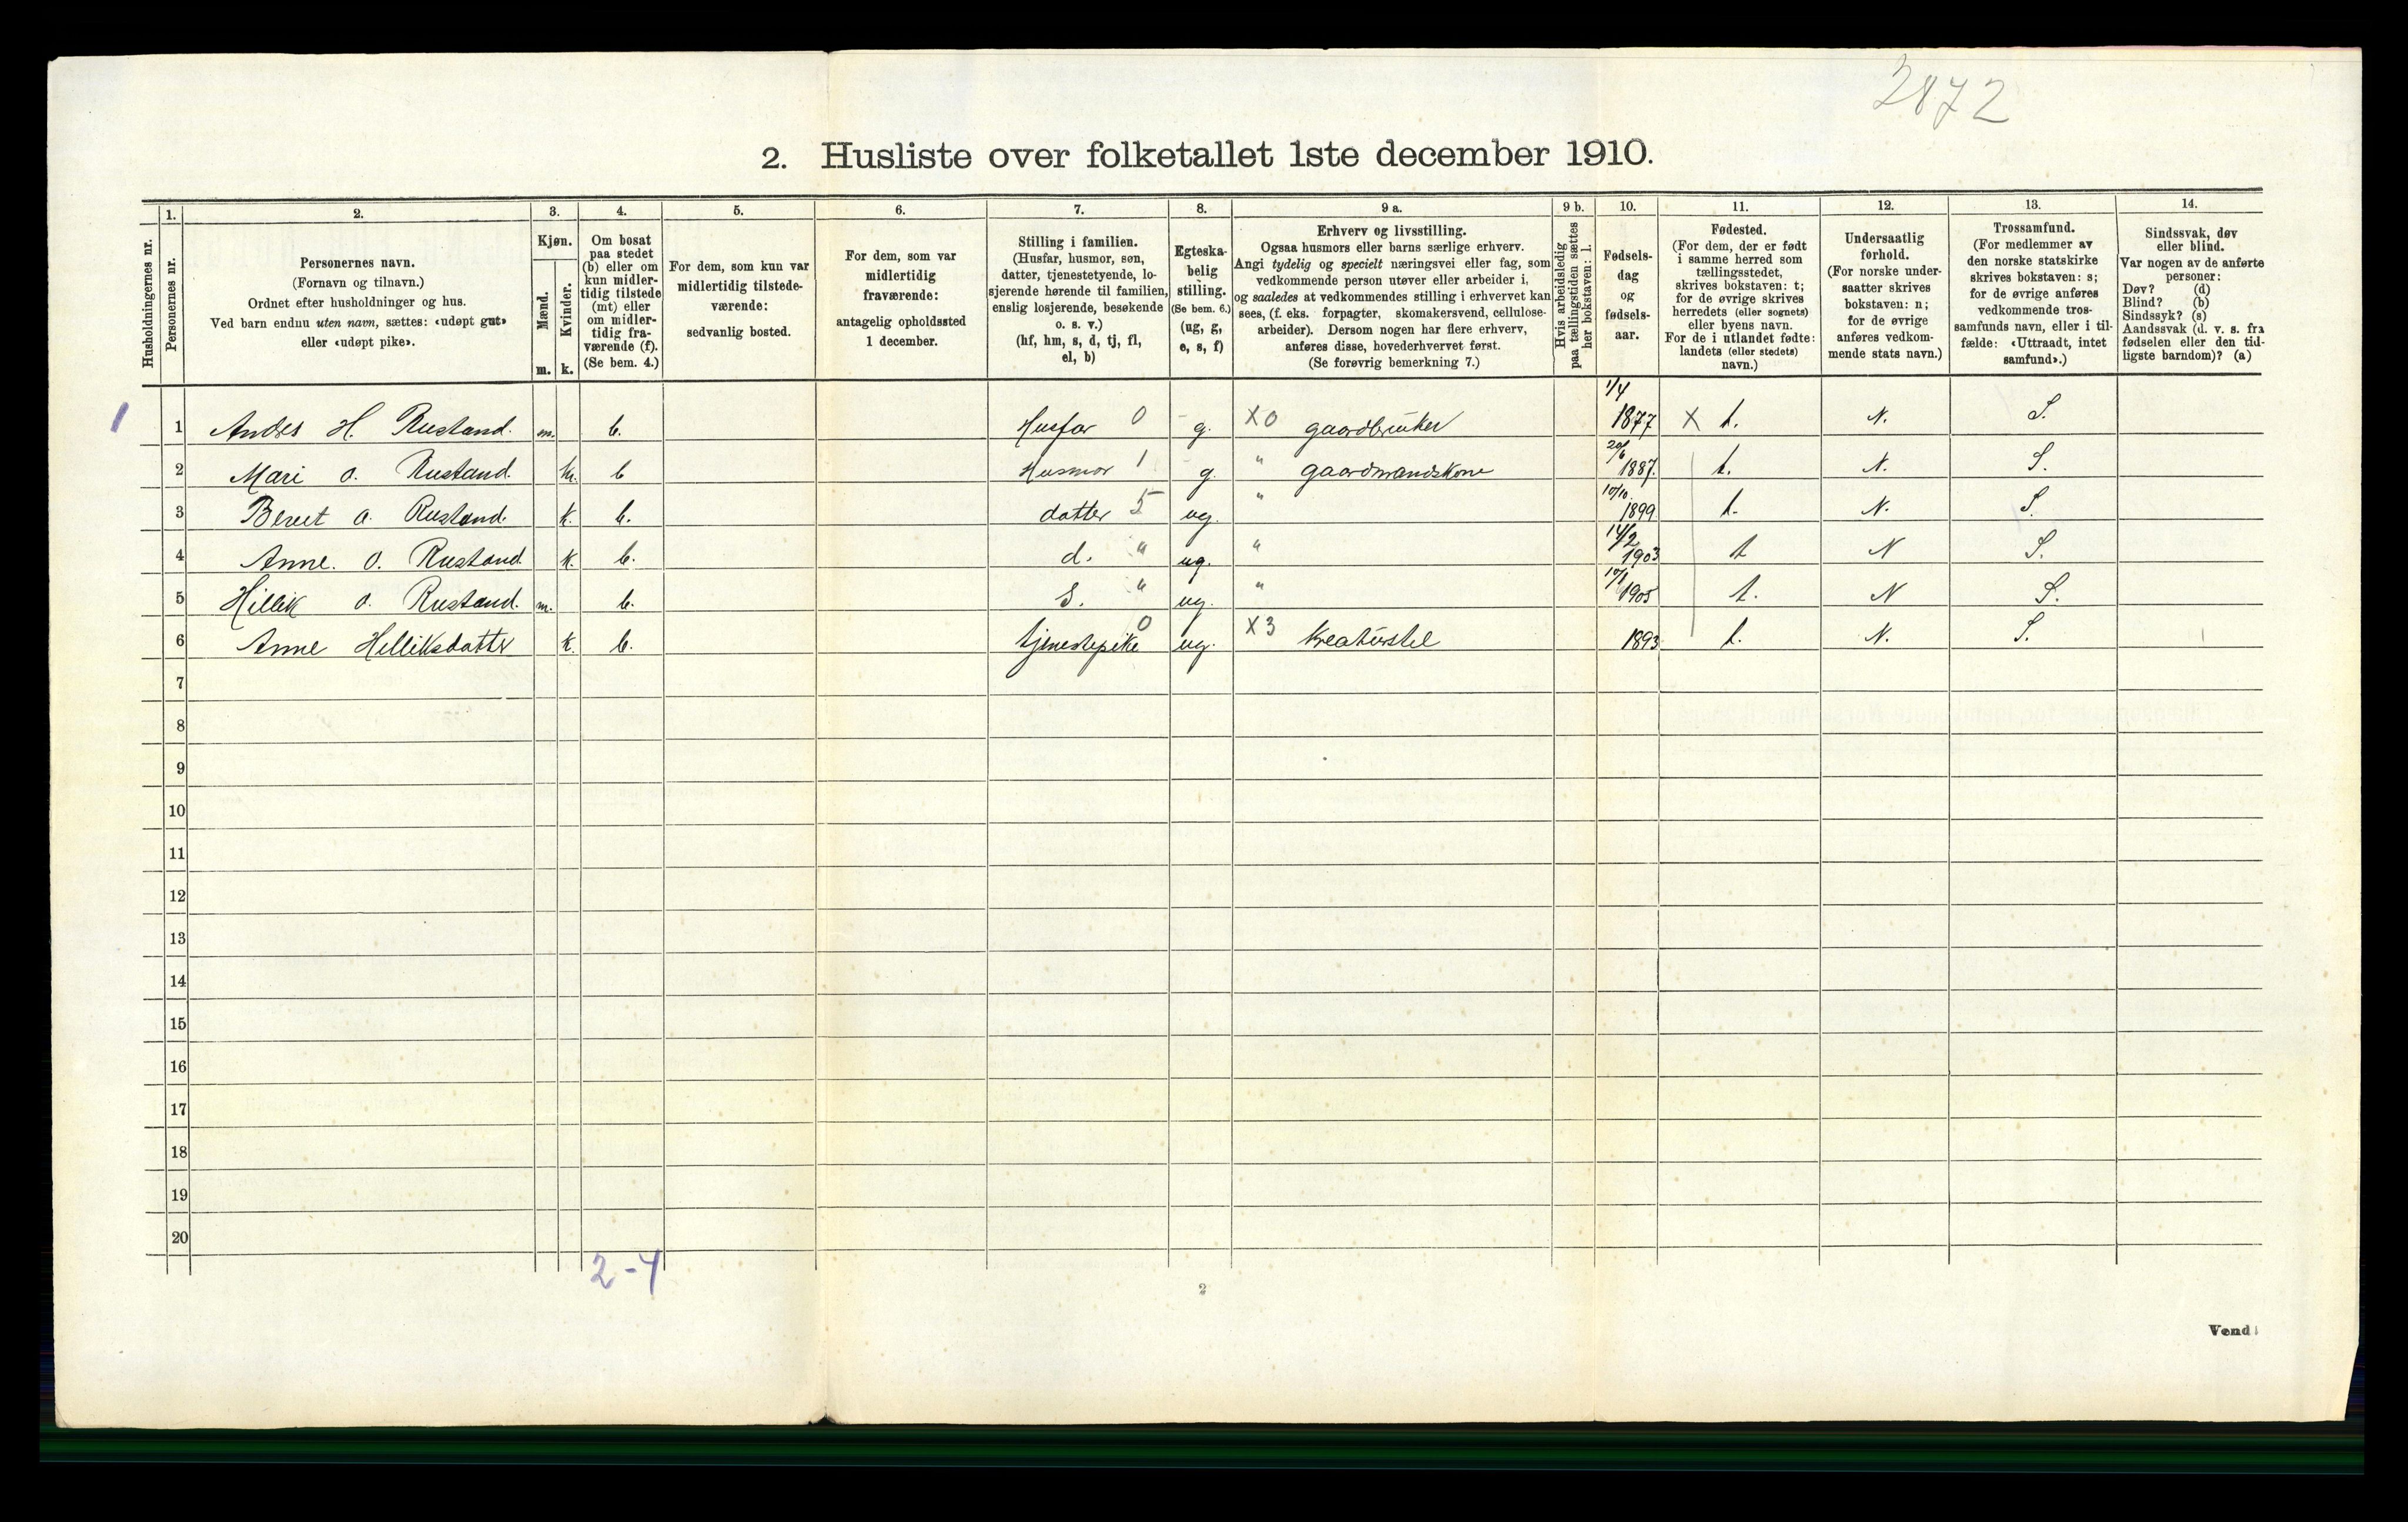 2872
2. Husliste over folketallet 1ste december 1910.
Husholdningernes nr.
1.
Personernes nr.
2.
Personernes navn.
(Fornavn og tilnavn.)
Ordnet efter husholdninger og hus.
Ved barn endnu uten navn, sættes: «udøpt gut»
eller «udøpt pike».
3.
Kjøn.
Mænd.
Kvinder.
m. k.
4.
Om bosat
paa stedet
(b) eller om
kun midler-
tidig tilstede
(mt) eller
om midler-
tidig fra-
værende (f).
(Se bem. 4.)
5.
For dem, som kun var
midlertidig tilstede-
værende:
sedvanlig bosted.
6.
For dem, som var
midlertidig
fraværende:
antagelig opholdssted
1 december.
7.
Stilling i familien.
(Husfar, husmor, søn,
datter, tjenestetyende, lo-
sjerende hørende til familien,
enslig losjerende, besøkende
o. s. v.)
(hf, hm, s, d, tj, fl,
el, b)
8.
Egteska-
belig
stilling.
(Se bem. 6.)
(ug, g,
e, s, f)
9 a.
Erhverv og livsstilling.
Ogsaa husmors eller barns særlige erhverv.
Angi tydelig og specielt næringsvei eller fag, som
vedkommende person utøver eller arbeider i,
og saaledes at vedkommendes stilling i erhvervet kan
sees, (f. eks. forpagter, skomakersvend, cellulose-
arbeider). Dersom nogen har flere erhverv,
anføres disse, hovederhvervet først.
(Se forøvrig bemerkning 7.)
9 b.
Hvis arbeidsledig
paa tællingstiden sættes
her bokstaven: l.
10.
Fødsels-
dag
og
fødsels-
aar.
11.
Fødested.
(For dem, der er født
i samme herred som
tællingsstedet,
skrives bokstaven: t;
for de øvrige skrives
herredets (eller sognets)
eller byens navn.
For de i utlandet fødte:
landets (eller stedets)
navn.)
12.
Undersaatlig
forhold.
(For norske under-
saatter skrives
bokstaven: n;
for de øvrige
anføres vedkom-
mende stats navn.)
13.
Trossamfund.
(For medlemmer av
den norske statskirke
skrives bokstaven: s;
for de øvrige anføres
vedkommende tros-
samfunds navn, eller i til-
fælde: «Uttraadt, intet
samfund».)
14.
Sindssvak, døv
eller blind.
Var nogen av de anførte
personer:
Døv? (d)
Blind? (b)
Sindssyk? (s)
Aandssvak (d. v. s. fra
fødselen eller den tid-
ligste barndom)? (a)
1 1 Andrs H. Rustand. m. b. Husfar 0 g. X0 gaardbruker 1/4 1877 X t. N. S.
2 Mari o. Rustand. k. b Husmor 1 g. " gaardmandskone 20/6 1887. t. N. S.
3 Beret a. Rustand. k. b. datter 5 ug. " 10/10 1899 t. N. S.
4 Anne. o. Rustand k. b. d. " ug. " 14/2 1903 t N S.
5 Hillik o. Rustand. m. b. S. " ug. " 10/1 1905 t. N S.
6 Anne Helliksdatter k. b. tjenestepike 0 ug. X3 kreaturstel 1893 t. N. S.
7
8
9
10
11
12
13
14
15
16
17
18
19
20
2-4
2
Vend!